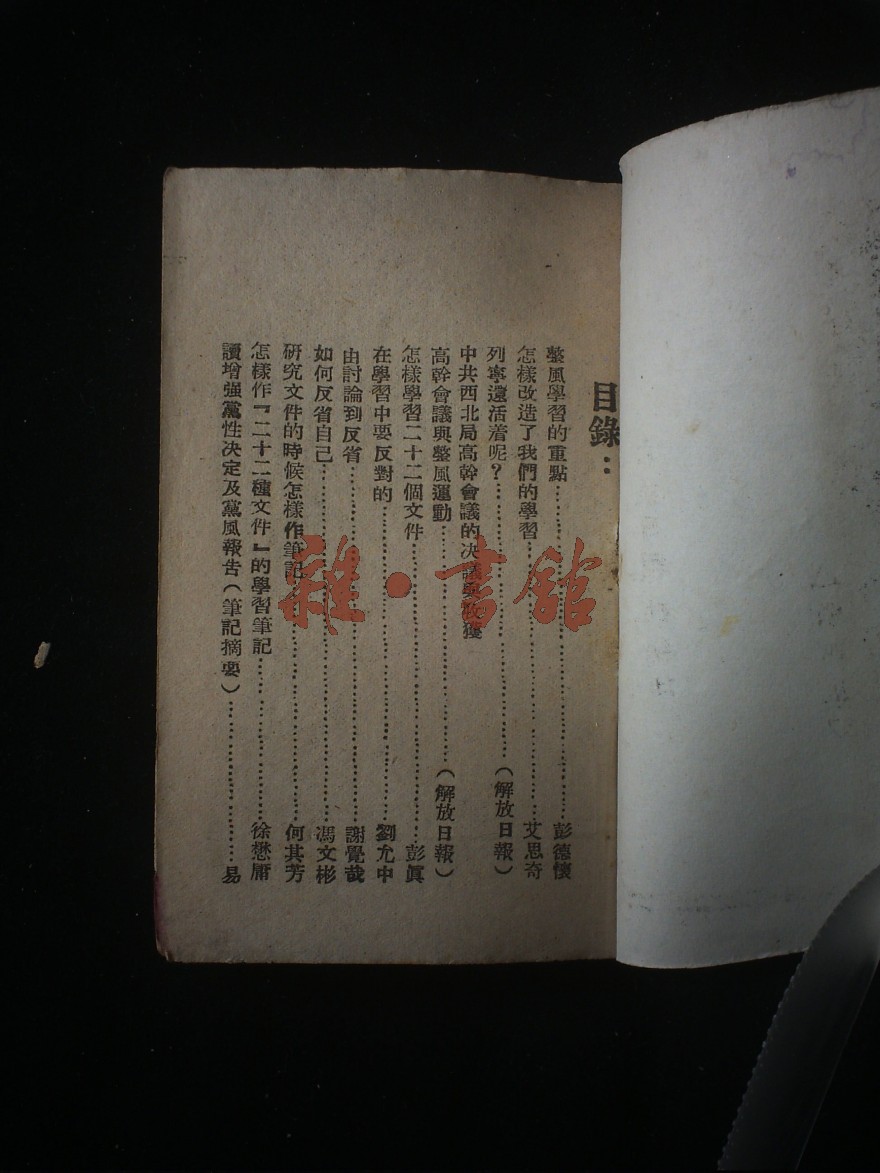 目錄：
整風學習的重點……………………彭德懷
怎樣改造了我們的學習……………………艾思奇
列寧還活着呢？……………………（解放日報）
中共西北局高幹會議的决議與收獲
高幹會議與整風運動……………………（解放日報）
怎樣學習二十二個文件……………………彭眞
在學習中要反對的……………………劉允中
由討論到反省……………………謝覺哉
如何反省自己……………………馮文彬
研究文件的時候怎樣作筆記……………………何其芳
怎樣作『二十二種文件』的學習筆記……………………徐懋庸
讀增强黨性决定及黨風報告（筆記摘要）……………………易
雜·書館